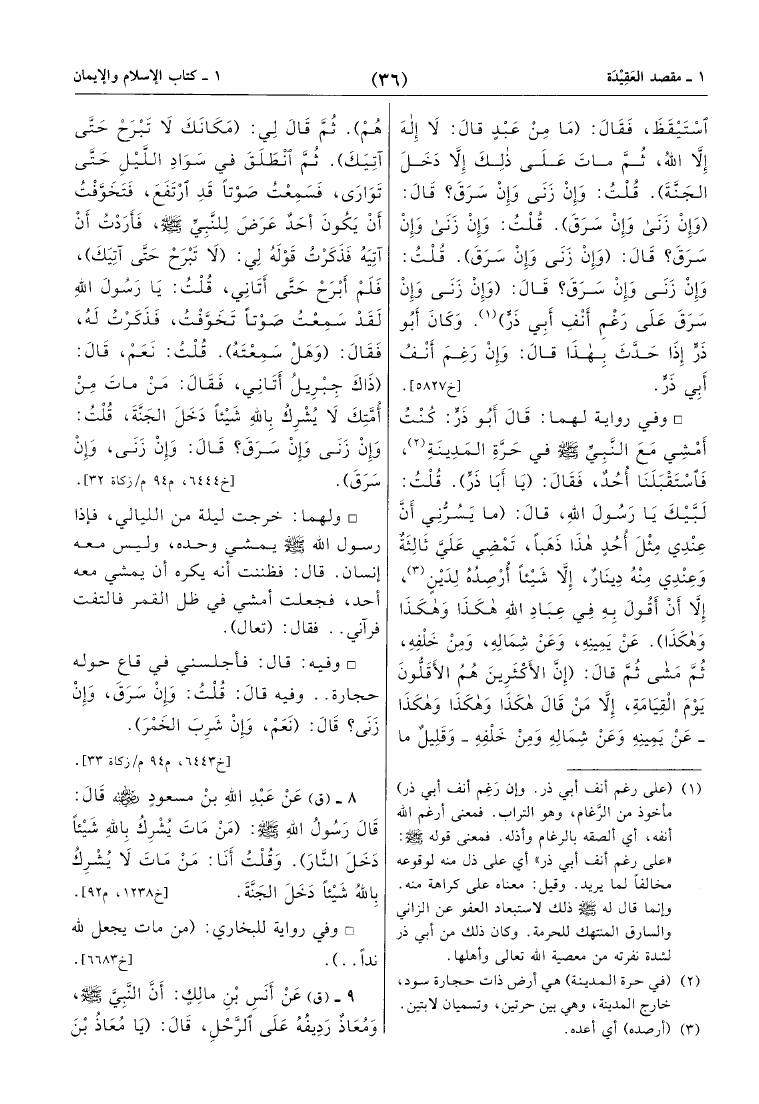 ١ ـ مقصد العَقِيْدَة
(٣٦)
١ ـ كتاب الإسلام والإيمان
ٱسْتَيْقَظَ، فَقَالَ: (مَا مِنْ عَبْدٍ قالَ: لَا إِلٰهَ
إِلَّا اللهُ، ثُـمَّ مـاتَ عَـلَـى ذٰلِـكَ إِلَّا دَخَـلَ
الـجَنَّةَ). قُـلْتُ: وَإِنْ زَنَـى وَإِنْ سَـرَقَ؟ قالَ:
(وَإِنْ زَنَىٰ وَإِنْ سَرَقَ). قُلْتُ: وَإِنْ زَنَىٰ وَإِنْ
سَـرَقَ؟ قالَ: (وَإِنْ زَنَى وَإِنْ سَرَقَ). قُـلْتُ:
وَإِنْ زَنَـى وَإِنْ سَـرَقَ؟ قـالَ: (وَإِنْ زَنَـى وَإِنْ
سَرَقَ عَلَى رَغْمِ أَنْفِ أَبِي ذَرٍّ)(١). وَكَانَ أَبُو
ذَرٍّ إِذَا حَدَّثَ بِـهٰـذَا قـالَ: وَإِنْ رَغِـمَ أَنْـفُ
أَبِي ذَرٍّ. [خ٥٨٢٧].
□ وفي رواية لـهـما: قـالَ أَبُـو ذَرٍّ: كُـنْتُ
أَمْشِي مَعَ النَّبِيِّ ﷺ في حَرَّةِ الـمَدِينَةِ(٢)،
فَٱسْتَقْبَلَنَا أُحُدٌ، فَقَالَ: (يَا أَبَا ذَرٍّ). قُلْتُ:
لَبَّيْكَ يَا رَسُولَ اللهِ، قالَ: (ما يَسُرُّنِي أَنَّ
عِنْدِي مِثْلَ أُحُدٍ هٰذَا ذَهَباً، تَمْضِي عَلَيَّ ثَالِثَةٌ
وَعِنْدِي مِنْهُ دِينَارٌ، إِلَّا شَيْئاً أَرْصِدُهُ لِدَيْنٍ(٣)،
إِلَّا أَنْ أَقُولَ بِهِ فِي عِبَادِ اللهِ هٰكَذَا وَهٰكَذَا
وَهٰكَذَا). عَنْ يَمِينِهِ، وَعَنْ شِمَالِهِ، وَمِنْ خَلْفِهِ،
ثُمَّ مَشَى ثُمَّ قالَ: (إِنَّ الأَكْثَرِينَ هُمُ الأَقَلُّونَ
يَوْمَ الْقِيَامَةِ، إِلَّا مَنْ قَالَ هٰكَذَا وَهٰكَذَا وَهٰكَذَا
ـ عَنْ يَمِينِهِ وَعَنْ شِمَالِهِ وَمِنْ خَلْفِهِ ـ وَقَلِيلٌ ما
(١) (على رغم أنف أبي ذر. وإن رَغِم أنف أبي ذر)
مأخوذ من الرَّغام، وهو التراب. فمعنى أرغم الله
أنفه، أي ألصقه بالرغام وأذله. فمعنى قوله ﷺ:
«على رغم أنف أبي ذر» أي على ذل منه لوقوعه
مخالفاً لما يريد. وقيل: معناه على كراهة منه.
وإنما قال له ﷺ ذلك لاستبعاد العفو عن الزاني
والسارق المنتهك للحرمة. وكان ذلك من أبي ذر
لشدة نفرته من معصية الله تعالى وأهلها.
(٢) (في حرة المدينة) هي أرض ذات حجارة سود،
خارج المدينة، وهي بين حرتين، وتسميان لابتين.
(٣) (أرصده) أي أعده.
هُمْ). ثُمَّ قالَ لِي: (مَكَانَكَ لَا تَبْرَحْ حَتَّى
آتِيَكَ). ثُمَّ ٱنْطَلَقَ في سَوَادِ اللَّيْلِ حَتَّى
تَوَارَى، فَسَمِعْتُ صَوْتاً قَدِ ٱرْتَفَعَ، فَتَخَوَّفْتُ
أَنْ يَكُونَ أَحَدٌ عَرَضَ لِلنَّبِيِّ ﷺ، فَأَرَدْتُ أَنْ
آتِيَهُ فَذَكَرْتُ قَوْلَهُ لِي: (لَا تَبْرَحْ حَتَّى آتِيَكَ)،
فَلَمْ أَبْرَحْ حَتَّى أَتَانِي، قُلْتُ: يَا رَسُولَ اللهِ
لَقَدْ سَمِعْتُ صَوْتاً تَخَوَّفْتُ، فَذَكَرْتُ لَهُ،
فَقَالَ: (وَهَلْ سَمِعْتَهُ). قُلْتُ: نَعَمْ، قَالَ:
(ذَاكَ جِبْرِيلُ أَتَانِي، فَقَالَ: مَنْ ماتَ مِنْ
أُمَّتِكَ لَا يُشْرِكُ بِاللهِ شَيْئاً دَخَلَ الجَنَّةَ، قُلْتُ:
وَإِنْ زَنَـى وَإِنْ سَـرَقَ؟ قـالَ: وَإِنْ زَنَـى، وَإِنْ
سَرَقَ). [خ٦٤٤٤، م٩٤ م/زكاة ٣٢].
□ ولهما: خرجت ليلة من الليالي، فإذا
رسول الله ﷺ يمشي وحده، وليس معه
إنسان. قال: فظننت أنه يكره أن يمشي معه
أحد، فجعلت أمشي في ظل القمر فالتفت
فرآني.. فقال: (تعال).
□ وفيه: قال: فأجلسني في قاع حوله
حجارة.. وفيه قالَ: قُلْتُ: وَإِنْ سَرَقَ، وَإِنْ
زَنَى؟ قَالَ: (نَعَمْ، وَإِنْ شَرِبَ الخَمْرَ).
[خ٦٤٤٣، م٩٤ م/زكاة ٣٣].
٨ ـ (ق) عَنْ عَبْدِ اللهِ بنْ مسعودٍ رضي الله عنه قَالَ:
قَالَ رَسُولُ اللهِ ﷺ: (مَنْ مَاتَ يُشْرِكُ بِاللهِ شَيْئاً
دَخَلَ النَّارَ). وَقُلْتُ أَنَا: مَنْ مَاتَ لَا يُشْرِكُ
بِاللهِ شَيْئاً دَخَلَ الجَنَّةَ. [خ١٢٣٨، م٩٢].
□ وفي رواية للبخاري: (من مات يجعل لله
نداً..). [خ٦٦٨٣].
٩ ـ (ق) عَنْ أَنَسِ بْنِ مالِكٍ: أَنَّ النَّبِيَّ ﷺ،
وَمُعَاذٌ رَدِيفُهُ عَلَى ٱلرَّحْلِ، قَالَ: (يَا مُعَاذُ بْنَ